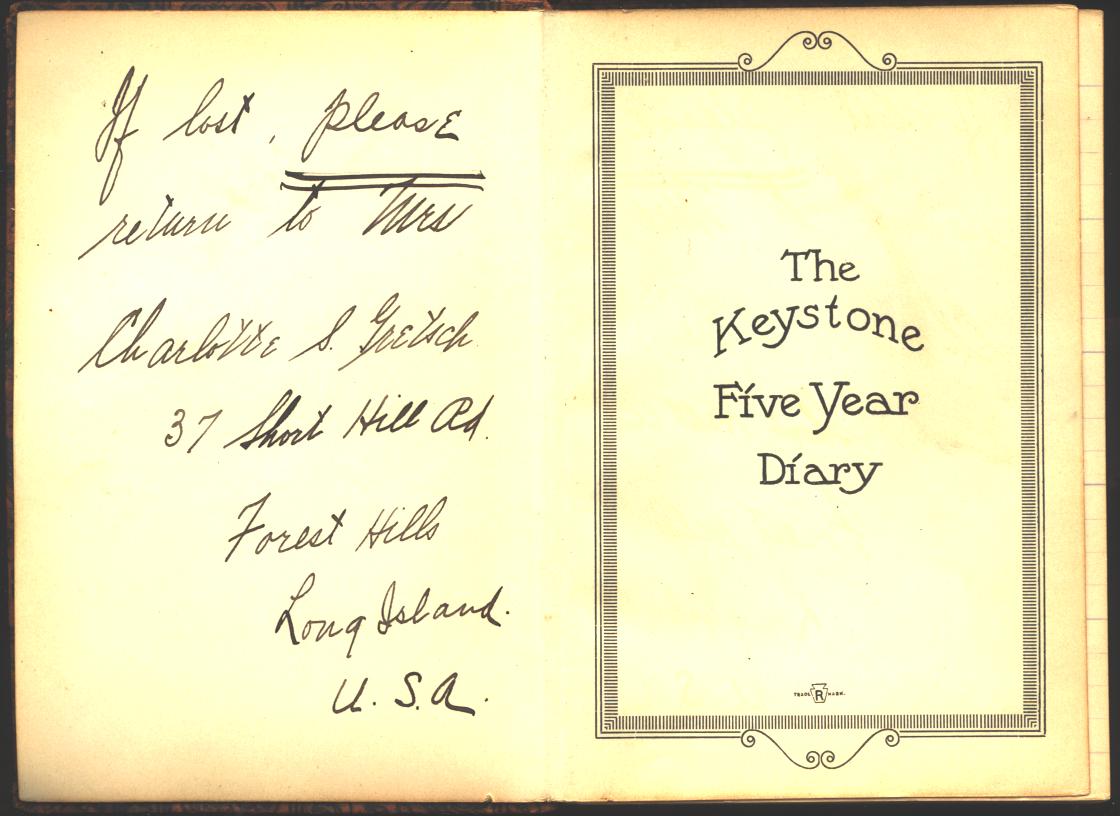 If lost, please
return to Mrs
Charlotte S. Gretsch
37 Short Hill Rd.
Forest Hills
Long Island.
U.S.A.
The
Keystone
Five Year
Diary
TRADE R MARK.